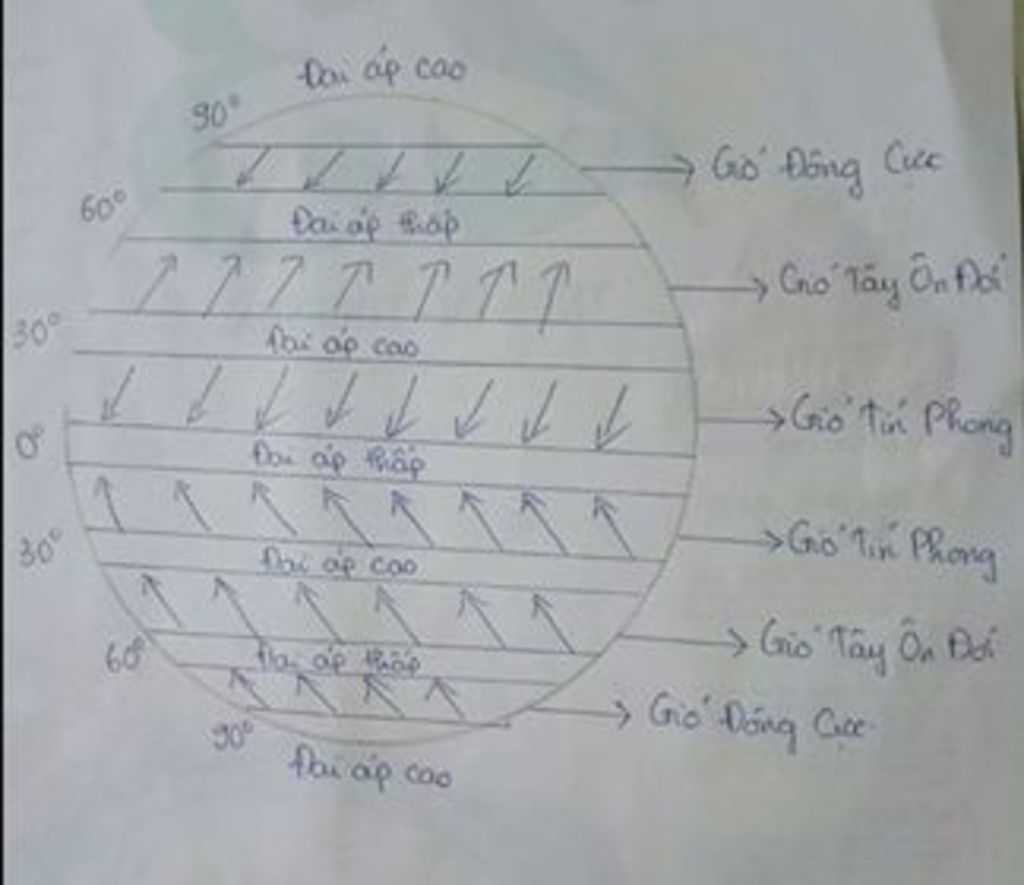 Đai áp cao
90°
Gió Đông Cực
60°
Đai áp thấp
Gió Tây Ôn Đới
30°
Đai áp cao
Gió Tín Phong
0°
Đai áp thấp
Gió Tín Phong
30°
Đai áp cao
Gió Tây Ôn Đới
60°
Đai áp thấp
Gió Đông Cực
90°
Đai áp cao